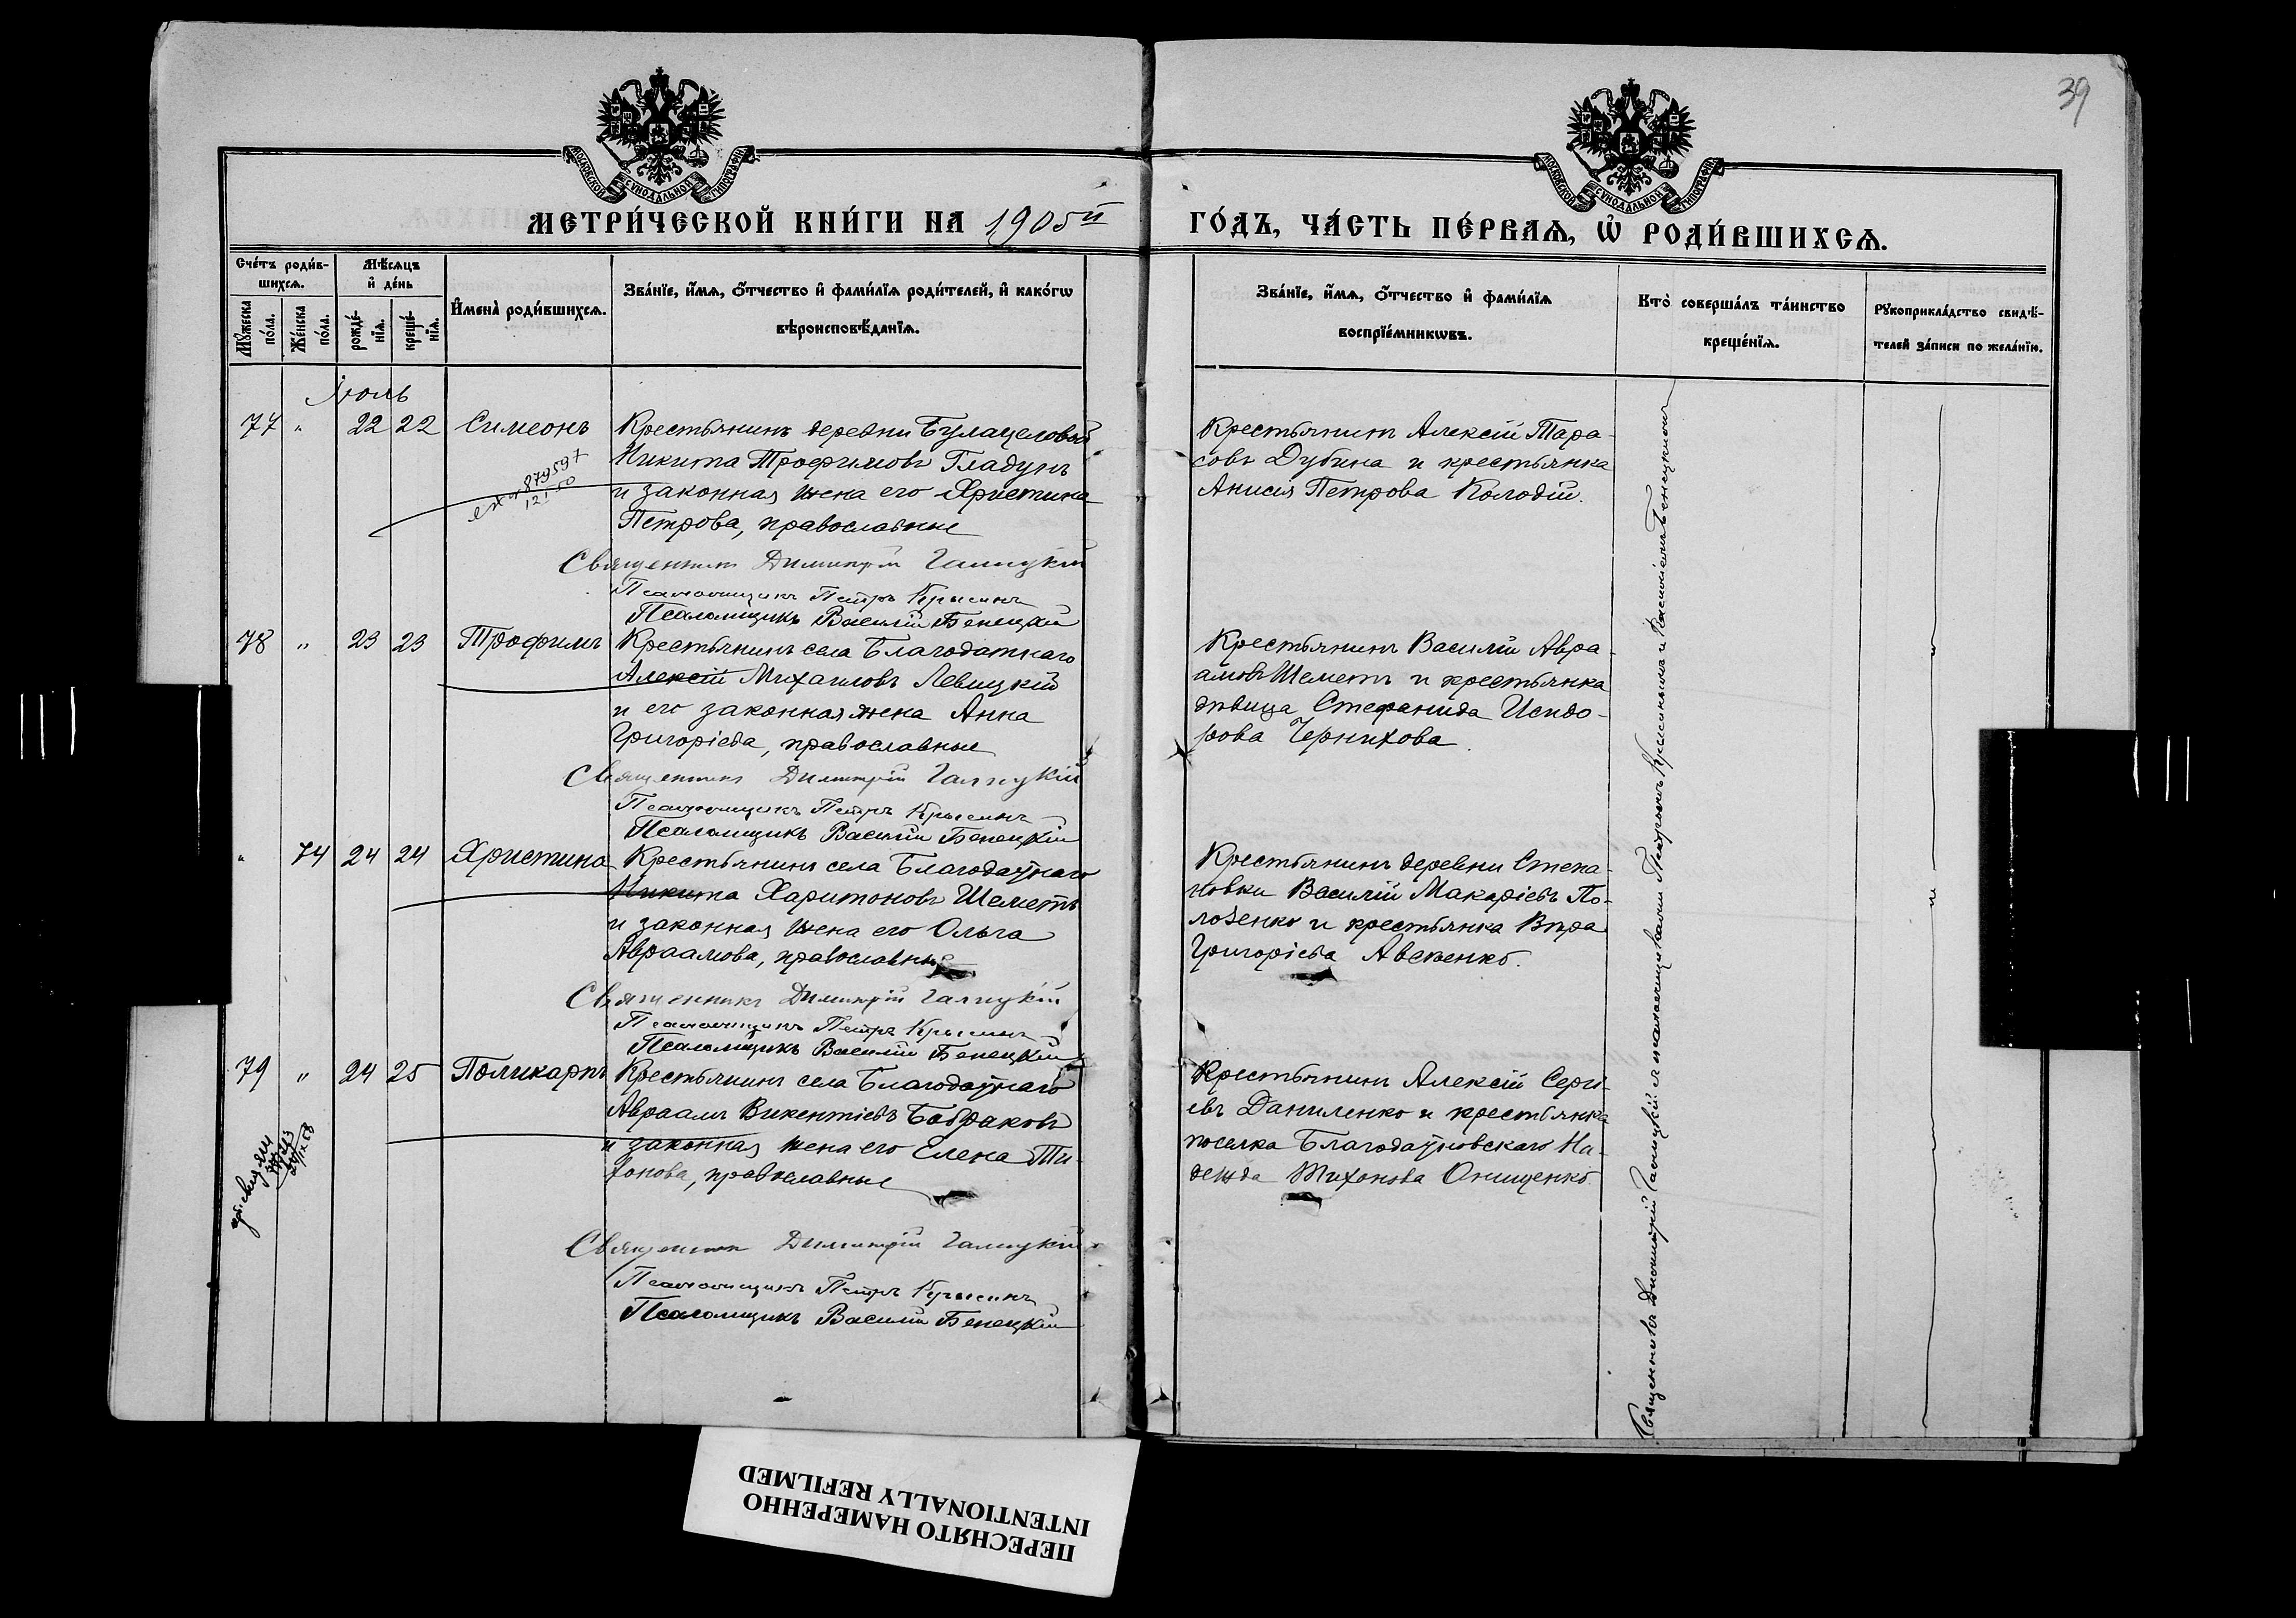 39
МОСКОВСКОЙ СУНОДАЛЬНОЙ ТИПОГРАФІИ
МОСКОВСКОЙ СУНОДАЛЬНОЙ ТИПОГРАФІИ
МЕТРИ́ЧЕСКОЙ КНИ́ГИ НА 1905й
ГО́ДЪ, ЧА́СТЬ ПЕ́РВАѦ, Ѡ҆ РОДИ́ВШИХСѦ.
Сче́тъ роди́в-
шихсѧ.
Мꙋ́жеска по́ла.
Же́нска по́ла.
Мѣ́сѧцъ
и҆ де́нь
рожде́-
нїѧ.
креще́-
нїѧ.
И҆мена̀ роди́вшихсѧ.
Зва́нїе, и҆́мѧ, ѻ҆́тчество и҆ фами́лїѧ роди́телей, и҆ како́гѡ
вѣроисповѣ́данїѧ.
Зва́нїе, и҆́мѧ, ѻ҆́тчество и҆ фами́лїѧ
воспрїе́мникѡвъ.
Кто̀ соверша́лъ та́инство
креще́нїѧ.
Рꙋкоприкла́дство свидѣ́-
телей за́писи по жела́нїю.
Іюль
77 " 22 22 Симеонъ
Крестьянинъ деревни Булацеловой
Никита Трофимовъ Гладунъ
и законная жена его Христина
Петрова, православные
879597
Священникъ Димитрій Галицкій
Псаломщикъ Петръ Крысинъ
Псаломщикъ Василій Бенецкій
Крестьянинъ Алексій Тара-
совъ Дубина и крестьянка
Анисія Петрова Колодій.
78 " 23 23 Трофимъ
Крестьянинъ села Благодатнаго
Алексій Михаиловъ Левицкій
и его законная жена Анна
Григоріева, православные
Священникъ Димитрій Галицкій
Псаломщикъ Петръ Крысинъ
Псаломщикъ Василій Бенецкій
Крестьянинъ Василій Авра-
амовъ Шеметъ и крестьянка
дѣвица Стефанида Исидо-
рова Чернихова.
" 74 24 24 Христина
Крестьянинъ села Благодатнаго
Никита Харитоновъ Шеметъ
и законная жена его Ольга
Авраамова, православные
Священникъ Димитрій Галицкій
Псаломщикъ Петръ Крысинъ
Псаломщикъ Василій Бенецкій
Крестьянинъ деревни Степа-
новки Василій Макаріевъ По-
лозенко и крестьянка Вѣра
Григоріева Авсѣенко.
79 " 24 25 Поликарпъ
Крестьянинъ села Благодатнаго
Авраамъ Викентіевъ Бобраковъ
и законная жена его Елена Ти-
хонова, православные
Священникъ Димитрій Галицкій
Псаломщикъ Петръ Крысинъ
Псаломщикъ Василій Бенецкій
Крестьянинъ Алексій Сергі-
евъ Даниленко и крестьянка
поселка Благодатновскаго На-
дежда Тихонова Онищенко.
Священникъ Димитрій Галицкій и псаломщиками Петромъ Крысинымъ и Василіемъ Бенецкимъ
ПЕРЕСНЯТО НАМЕРЕННО
INTENTIONALLY REFILMED